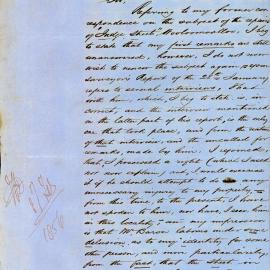 Sir,
Referring to my former cor-
respondence on the subject of the repairs
of Judge Street Woolloomooloo, I beg
to state that my first remarks are still
unanswered, however, I do not now
wish to renew the subject upon
surveyor's Report of the 28th January,
refers to several interviews, I had
with him, which, I beg to state is in-
correct, and the interview mentioned
in the latter part of his report, is the only
one that took place, and from the nature
of that interview, and the uncalled for
remarks, made by him, I rejoined,
that I possessed a right (which I need
not now explain) and, I would exercise
it if he should attempt to do any
unnecessary injury to my property,—
from this time, to the present, I have
not spoken to him, nor have I seen him
in this locality, and my impression
is that Mr Baron labours under some
delusion, as to my identity for some
other person, and more particularly,
from the fact, that the Street in